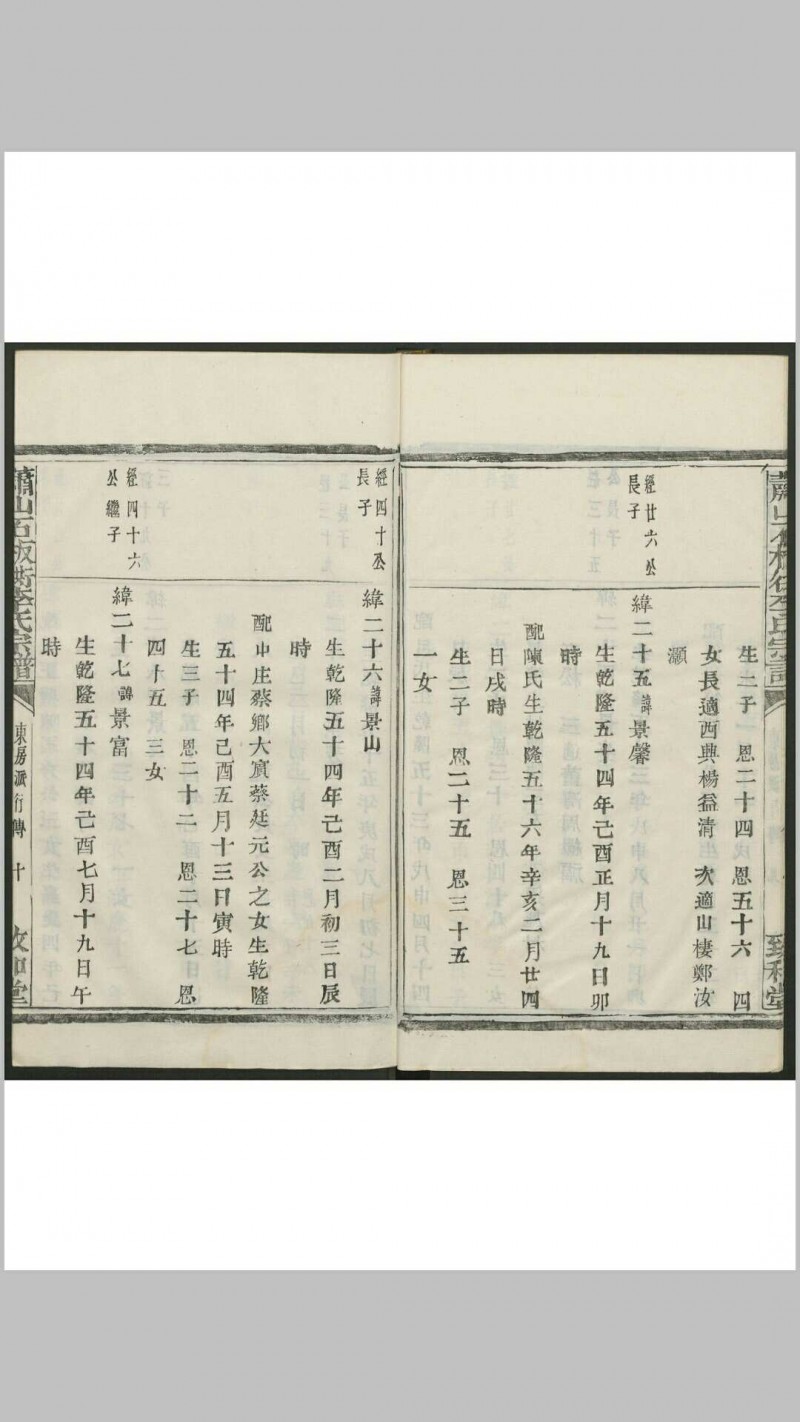 生二子 恩二十四 恩五十六 四
女長適西興楊益清 次適山棲鄭汝
灝
經廿六公
長子
緯二十五諱景馨
生乾隆五十四年己酉正月十九日卯
時
配陳氏生乾隆五十六年辛亥二月廿四
日戌時
生二子 恩二十五 恩三十五
一女
致和堂
經四十公
長子
緯二十六諱景山
生乾隆五十四年己酉二月初三日辰
時
配中庄蔡鄉大賔蔡廷元公之女生乾隆
五十四年己酉五月十三日寅時
生三子 恩二十二 恩二十七 恩
四十五 三女
經四十六
公繼子
緯二十七諱景富
生乾隆五十四年己酉七月十九日午
時
蕭山石板衖李氏宗譜
東房派行傳 十
致和堂